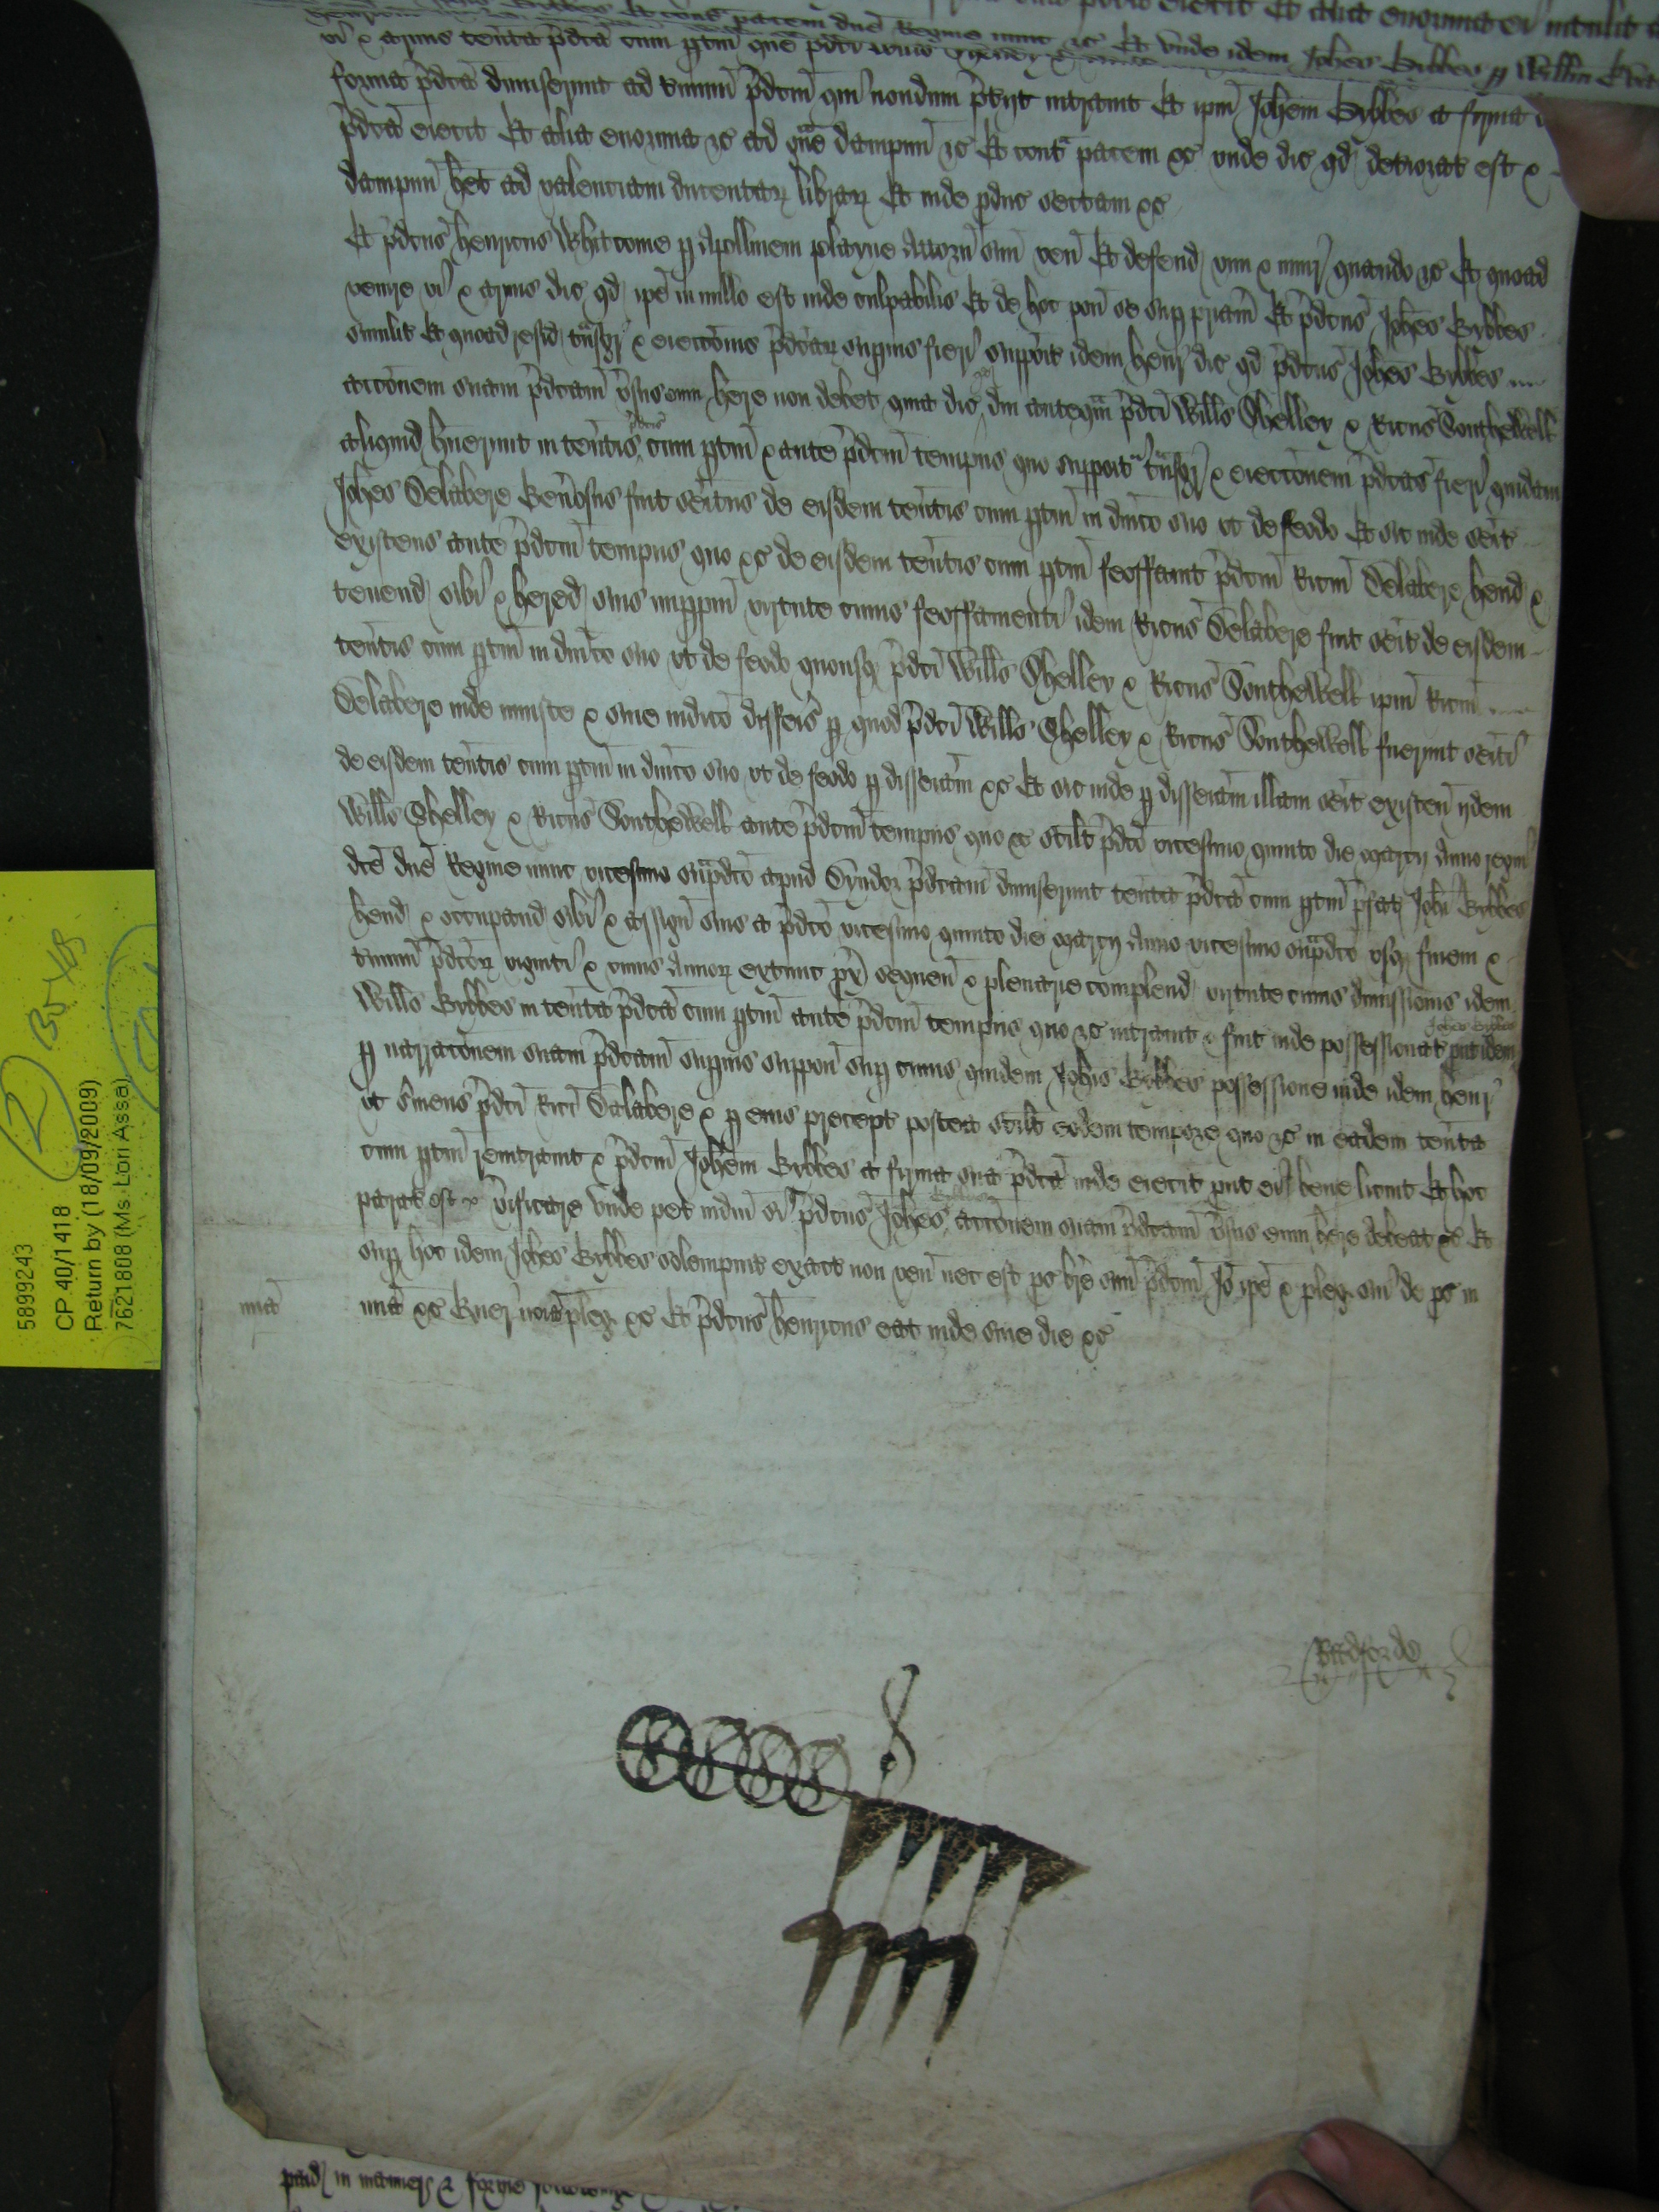 vi & armis tenta pdca cum ptin que pdci Willus Shelley & idem Johes Bybbes p Willm
forma pdca dimiserunt ad tminu pdcm qui nondum pterijt intravit Et ipm Johem Bybbes a firma
pdca eiecit Et alia enormia &c ad g've dampnu &c Et cont pacem &c unde dic qd detiorat est &
dampnu het ad valenciam ducentar librar Et inde pduc sectam &c
Et pdcus Henricus Whitcome p Apollinem playne Attorn suu ven Et defend vim & iniur quando &c Et quoad
venire vi & armis dic qd ipe in nullo est inde culpabilis Et de hoc pon se sup priam Et pdcus Johes Bybbes
similit Et quoad resid tnsgr & eieccionis pdcar supius fieri supposit idem Henr dic qd pdcus Johes Bybbes
accionem suam pdcam vsus eum here non debet quia dic qd diu anteqm pdci Willus Shelley & Ricus Southewell
aliquid huerunt in tentis pdcis cum ptin & ante pdcm tempus quo supponit tnsgr & eieccionem pdcas fieri quidam
Johes Delabere fuit seitus de eisdem tentis cum ptin in dnico suo ut de feodo Et sic inde seit
existens ante pdcm tempus quo &c de eisdem tentis cum ptin feoffavit pdcm Ricm Delabere hend &
tenend sibi & hered suis imppm virtute cuius feoffamenti idem Ricus Delabere fuit seit de eisdem
tentis cum ptin in dnico suo ut de feodo quousq pdci Willus Shelley & Ricus Southewell ipm Ricm
Delabere inde iniuste & sine iudico disseis p quod pdci Willus Shelley & Ricus Southewell fuerunt seiti
de eisdem tentis cum ptin in dnico suo ut de feodo p disseinam &c Et sic inde p disseinam illam seit existen ijdem
Willus Shelley & Ricus Southewell ante pdcm tempus quo &c scilt pdco vicesimo quinto die marcij Anno regni
dce dne Regine nunc vicesimo supdco apud Dyndor pdcam dimiserunt tenta pdca cum ptin pfat Johi Bybbes
hend & occupand sibi & assign suis a pdco vicesimo quinto die marcij Anno vicesimo supdco usq finem &
tminu pdcor viginti & unius Annor extunc px sequen & plenarie complend virtute cuius dimissionis idem
Willus Bybbes in tenta pdca cum ptin ante pdcm tempus quo &c intravit & fuit inde possessionat put idem Johes Bybbes
p narracionem suam pdcam supius suppon sup cuius quidem Johis Bybbes possessione inde idem Henr
ut sviens pdci Rici Delabere & p eius precept postea scilt eodem tempore quo &c in eadem tenta
cum ptin reintravit & pdcm Johem Bybbes a firma sua pdca inde eiecit put ei bene licuit Et hoc
parat est vificare Unde pet iudm si pdcus Johes Bybbes accionem suam pdcam vsus eum here debeat &c Et
sup hoc idem Johes Bybbes solempnit exact non ven nec est ps bre suu pdcm Io ipe & pleg sui de ps in
mia &c Quer noia pleg &c Et pdcus Henricus eat inde sine die &c
mia
Bedforde
5899243
CP 40/1418
Return by (18/09/2009)
7621808 (Ms. Lori Assa)